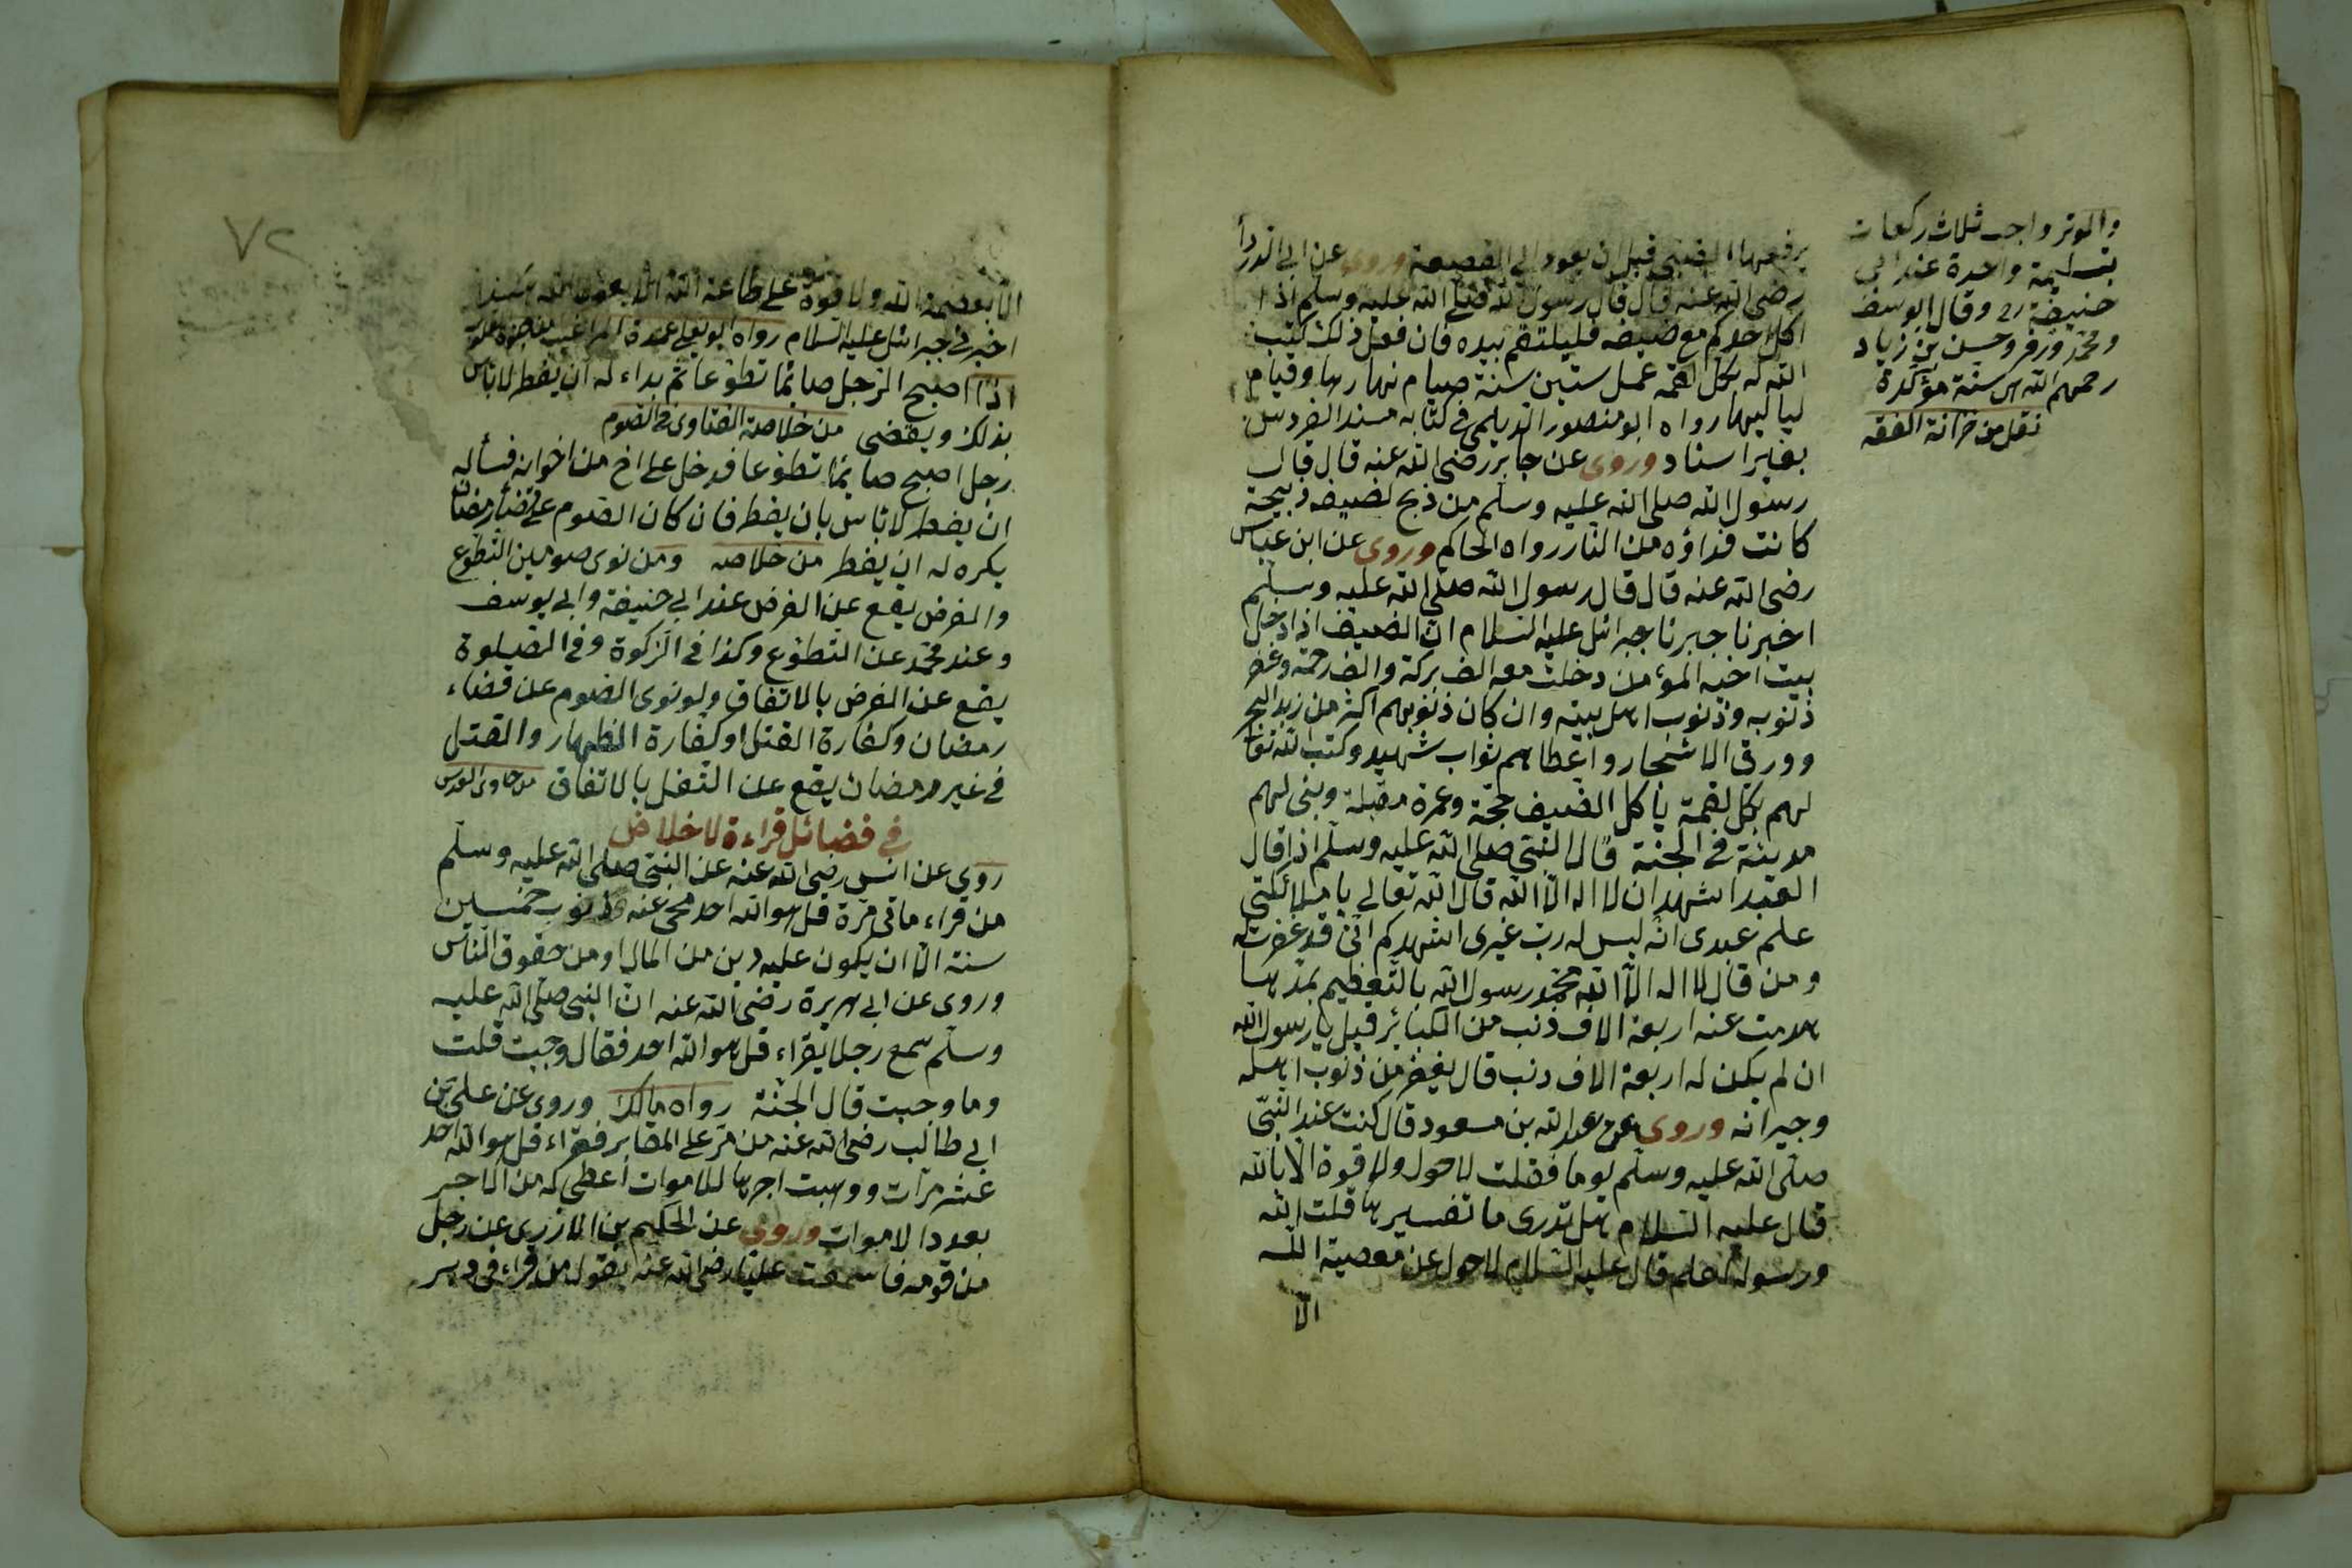 يرفعها الضيف قبل ان يعود الى القصعة وروى عن ابى الدرداء
رضى الله عنه قال قال رسول الله صلى الله عليه وسلم اذا
اكل احدكم مع ضيفه فليلتقم بيده فان فعل ذلك كتب
الله له بكل لقمة عمل ستين سنة صيام نهارها وقيام
لياليها رواه ابو منصور الديلمى فى كتابه مسند الفردوس
بغير اسناد وروى عن جابر رضى الله عنه قال قال
رسول الله صلى الله عليه وسلم من ذبح لضيفه ذبيحة
كانت فداؤه من النار رواه الحاكم وروى عن ابن عباس
رضى الله عنه قال قال رسول الله صلى الله عليه وسلم
اخبرنا جبرنا جبرائل عليه السلام ان الضيف اذا دخل
بيت اخيه المؤمن دخلت معه الف بركة والف رحمة وغفر
ذنوبه وذنوب اهل بيته وان كان ذنوبهم اكثر من زبد البحر
وورق الاشجار واعطاهم ثواب شهيد وكتب الله تعا
لهم بكل لقمة يأكل الضيف حجة وعمرة مقبلة وبنى لهم
مدينة فى الجنة قال النبى صلى الله عليه وسلم اذا قال
العبد اشهد ان لا اله الا الله قال الله تعالى يا ملائكتى
علم عبدى انه ليس له رب غيرى اشهدكم انى قد غفرت له
ومن قال لا اله الا الله محمد رسول الله بالتعظيم بمدها
هدمت عنه اربعة الاف ذنب من الكبائر قيل يا رسول الله
ان لم يكن له اربعة الاف ذنب قال يغفر من ذنوب اهله
وجيرانه وروى عن عبد الله بن مسعود قال كنت عند النبى
صلى الله عليه وسلم يوما فقلت لا حول ولا قوة الا بالله
قال عليه السلام هل تدرى ما تفسيرها قلت الله
ورسوله اعلم قال عليه السلام لا حول عن معصية الله
الا
والوتر واجب ثلاث ركعات
بتسليمة واحدة عند ابى
حنيفة رح وقال ابو يوسف
ومحمد وزفر وحسن بن زياد
رحمهم الله هى سنة مؤكدة
نقل من خزانة الفقه
٧٢
الا بعصمة الله ولا قوة على طاعة الله الا بعون الله
اخبر فى جبرائل عليه السلام رواه ابو يعلى
اذا اصبح الرجل صائما تطوعا ثم بداء له ان يفطر لا بأس
بذلك ويقضى من خلاصة الفتاوى فى الصوم
رجل اصبح صائما تطوعا فدخل على اخ من اخوانه فسأله
ان يفطر لا بأس بان يفطر فان كان الصوم على قضاء رمضان
يكره له ان يفطر من خلاصه ومن نوى صومين التطوع
والفرض يقع عن الفرض عند ابى حنيفة وابى يوسف
وعند محمد عن التطوع وكذا فى الزكوة وفى الصلوة
يقع عن الفرض بالاتفاق ولو نوى الصوم عن قضاء
رمضان وكفارة القتل او كفارة الظهار والقتل
فى غير رمضان يقع عن النفل بالاتفاق من حاوى القدس
فى فضائل قراءة الاخلاص
روى عن انس رضى الله عنه عن النبى صلى الله عليه وسلم
من قراء مأتى مرة قل هو الله احد محى عنه ذنوب خمسين
سنة الا ان يكون عليه دين من المال او من حقوق الناس
وروى عن ابى هريرة رضى الله عنه ان النبى صلى الله عليه
وسلم سمع رجلا يقراء قل هو الله احد فقال وجبت قلت
وما وجبت قال الجنة رواه مالك وروى عن على بن
ابى طالب رضى الله عنه من مر على المقابر فقراء قل هو الله احد
عشر مرات ووهبت اجرها للاموات اعطى له من الاجر
بعدد الاموات وروى عن الحكيم بن الازرى عن رجل
من قومه قا سمعت عليا رضى الله عنه يقول من قراء فى دبر